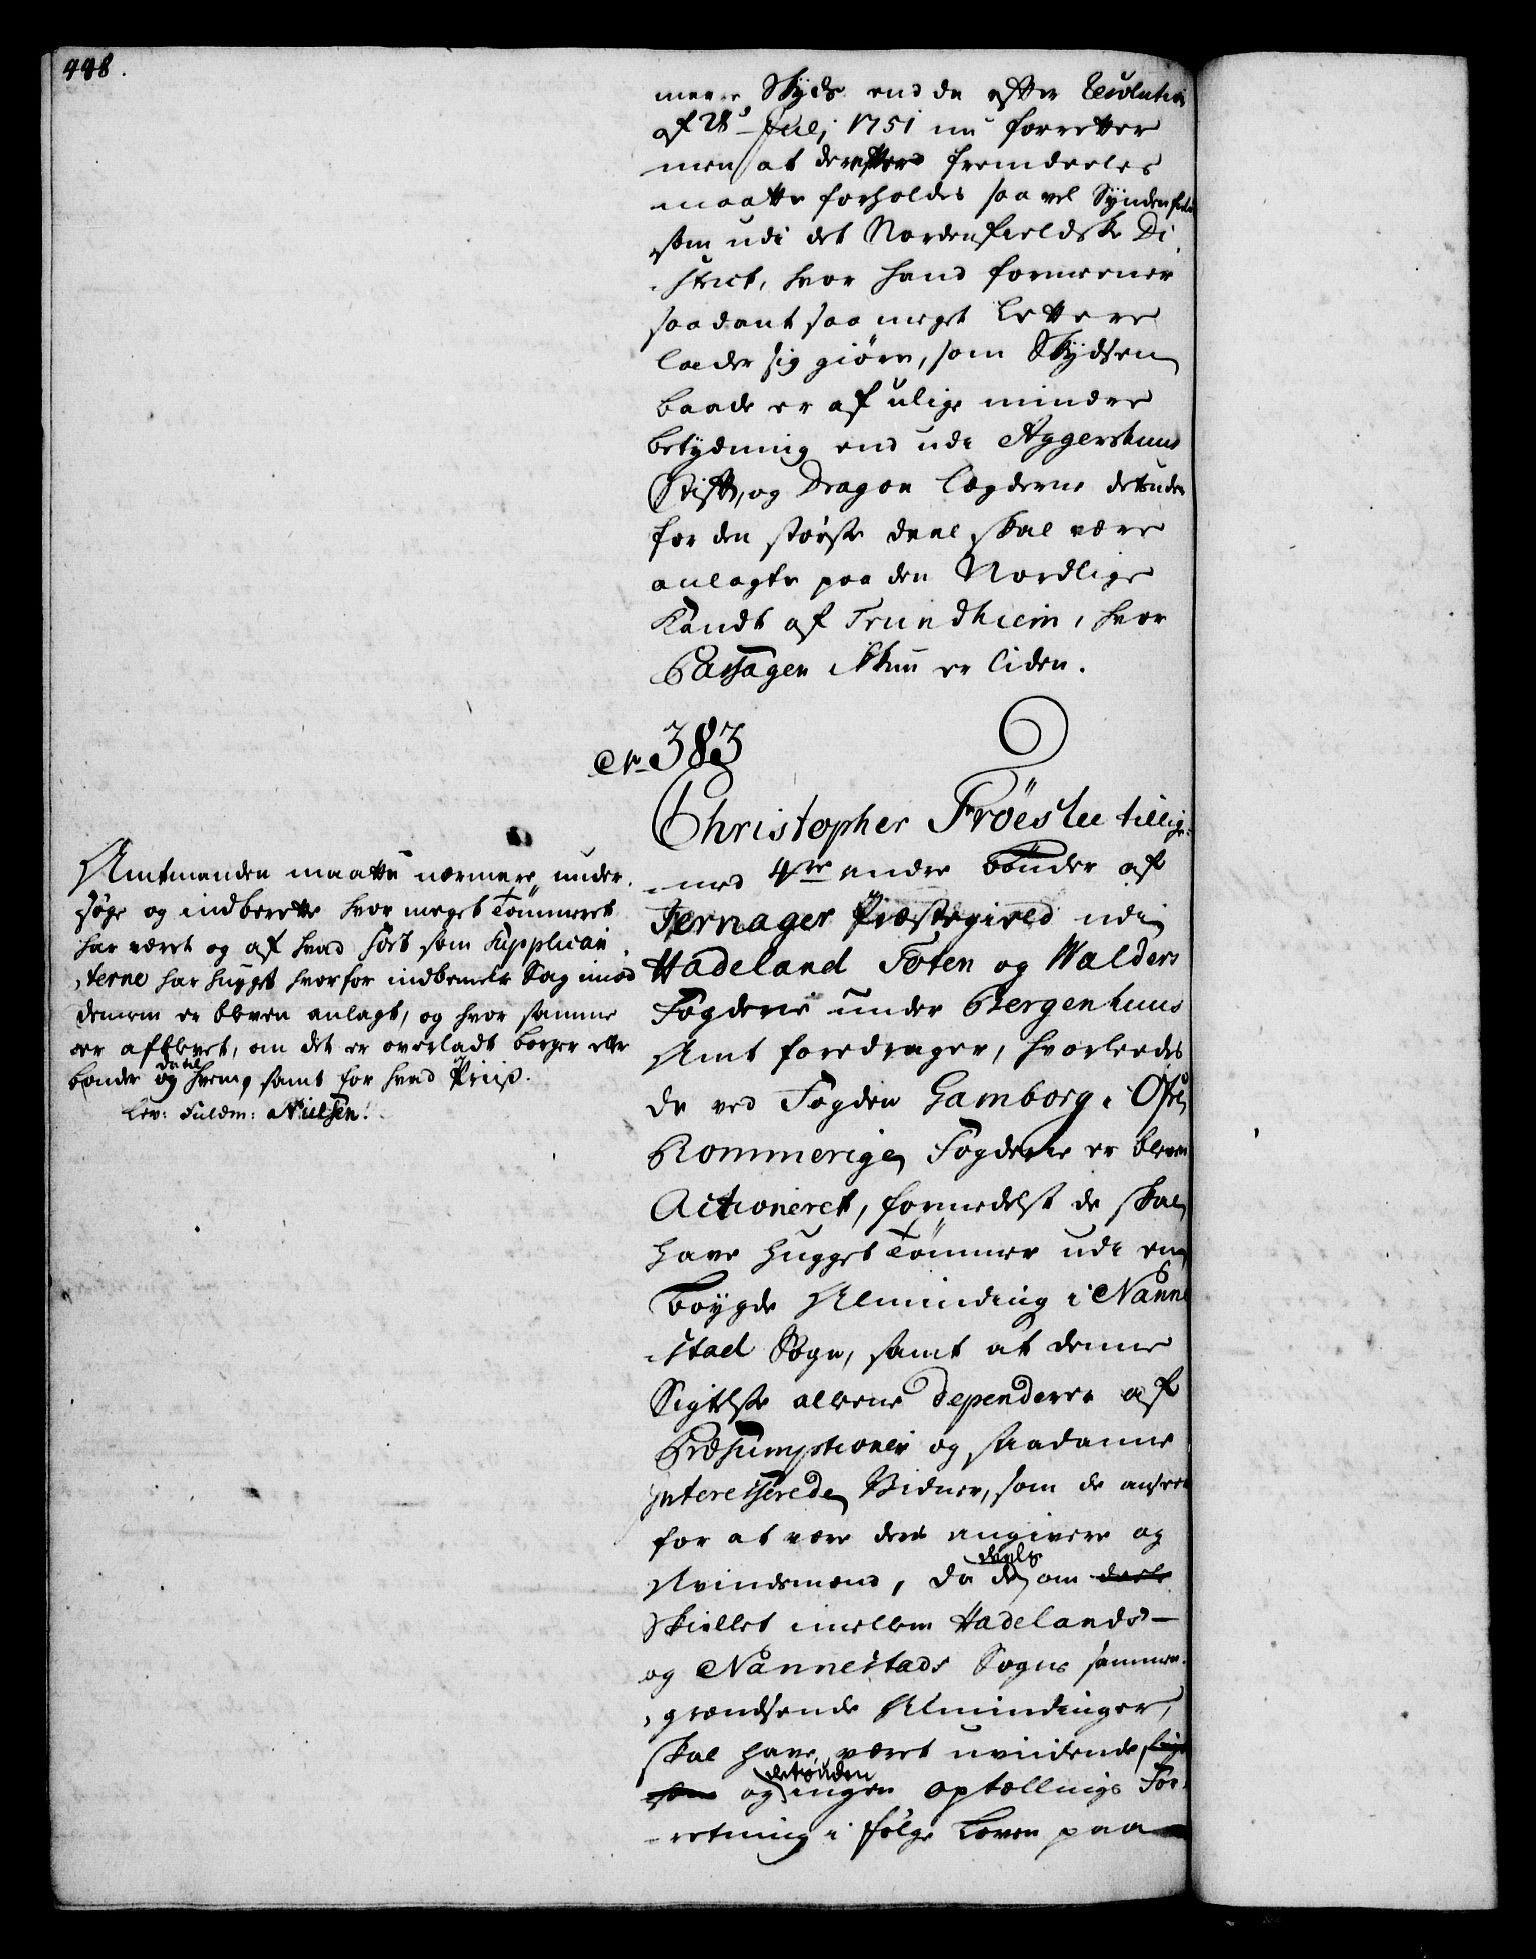 448.
meere Skyds end de efter Resolution
af 28de Julj 1751 nu forretter
men at derefter fremdeeles
maatte forholdes saavel Syndenfields
som udi det Nordenfieldske Di-
strict, hvor hand formeener
saadant saa meget lettere
lader sig giøre, som Skydsen
baade er af ulige mindre
betydning end udi Aggershuus
Stift, og Dragon Lægderne desuden
for den største deel skal være
anlagte paa den Nordlige
Kandt af Trundhiem, hvor
Passagen ikkun er liden.
No 383
Christopher Fröeslee tillige-
med 4re andre bönder af
Jernager Præstegield udi
Hadeland Toten og Walders
Fogderie under Bergenhuus
Amt foredrager, hvorleedes
de ved Fogden Gamborg i Øfre
Rommerige Fogderie er bleven
Actioneret, formedelst de skal
have hugget Tömmer udi en
boygde Alminding i Nanne-
stad Sogn, samt at denne
Sigtelse alleene dependerer af
Præsumptioner og saadanne
interesserede Vidner, som de anseer
for at være dere angivere og
Avindsmænd, da de deels om deels
skiellet imellem Hadelands-
og Nannestads Sogns sammen-
grændsende Alminding er,
skal have været uvidende
og desuden ingen optællings For-
retning i følge Loven paa
Amtmanden maatte nærmere under-
søge og indberette hvor meget Tömmeret
har været og af hvad sort som Supplican-
terne har hugget hvorfor indbemelte Sag imod
dennem er bleven anlagt, og hvor samme
er afleveret, om det er overladt borger eller
bonder og da til hvem, samt for hvad Priis.
Lev: Fuldm: Nielsen.